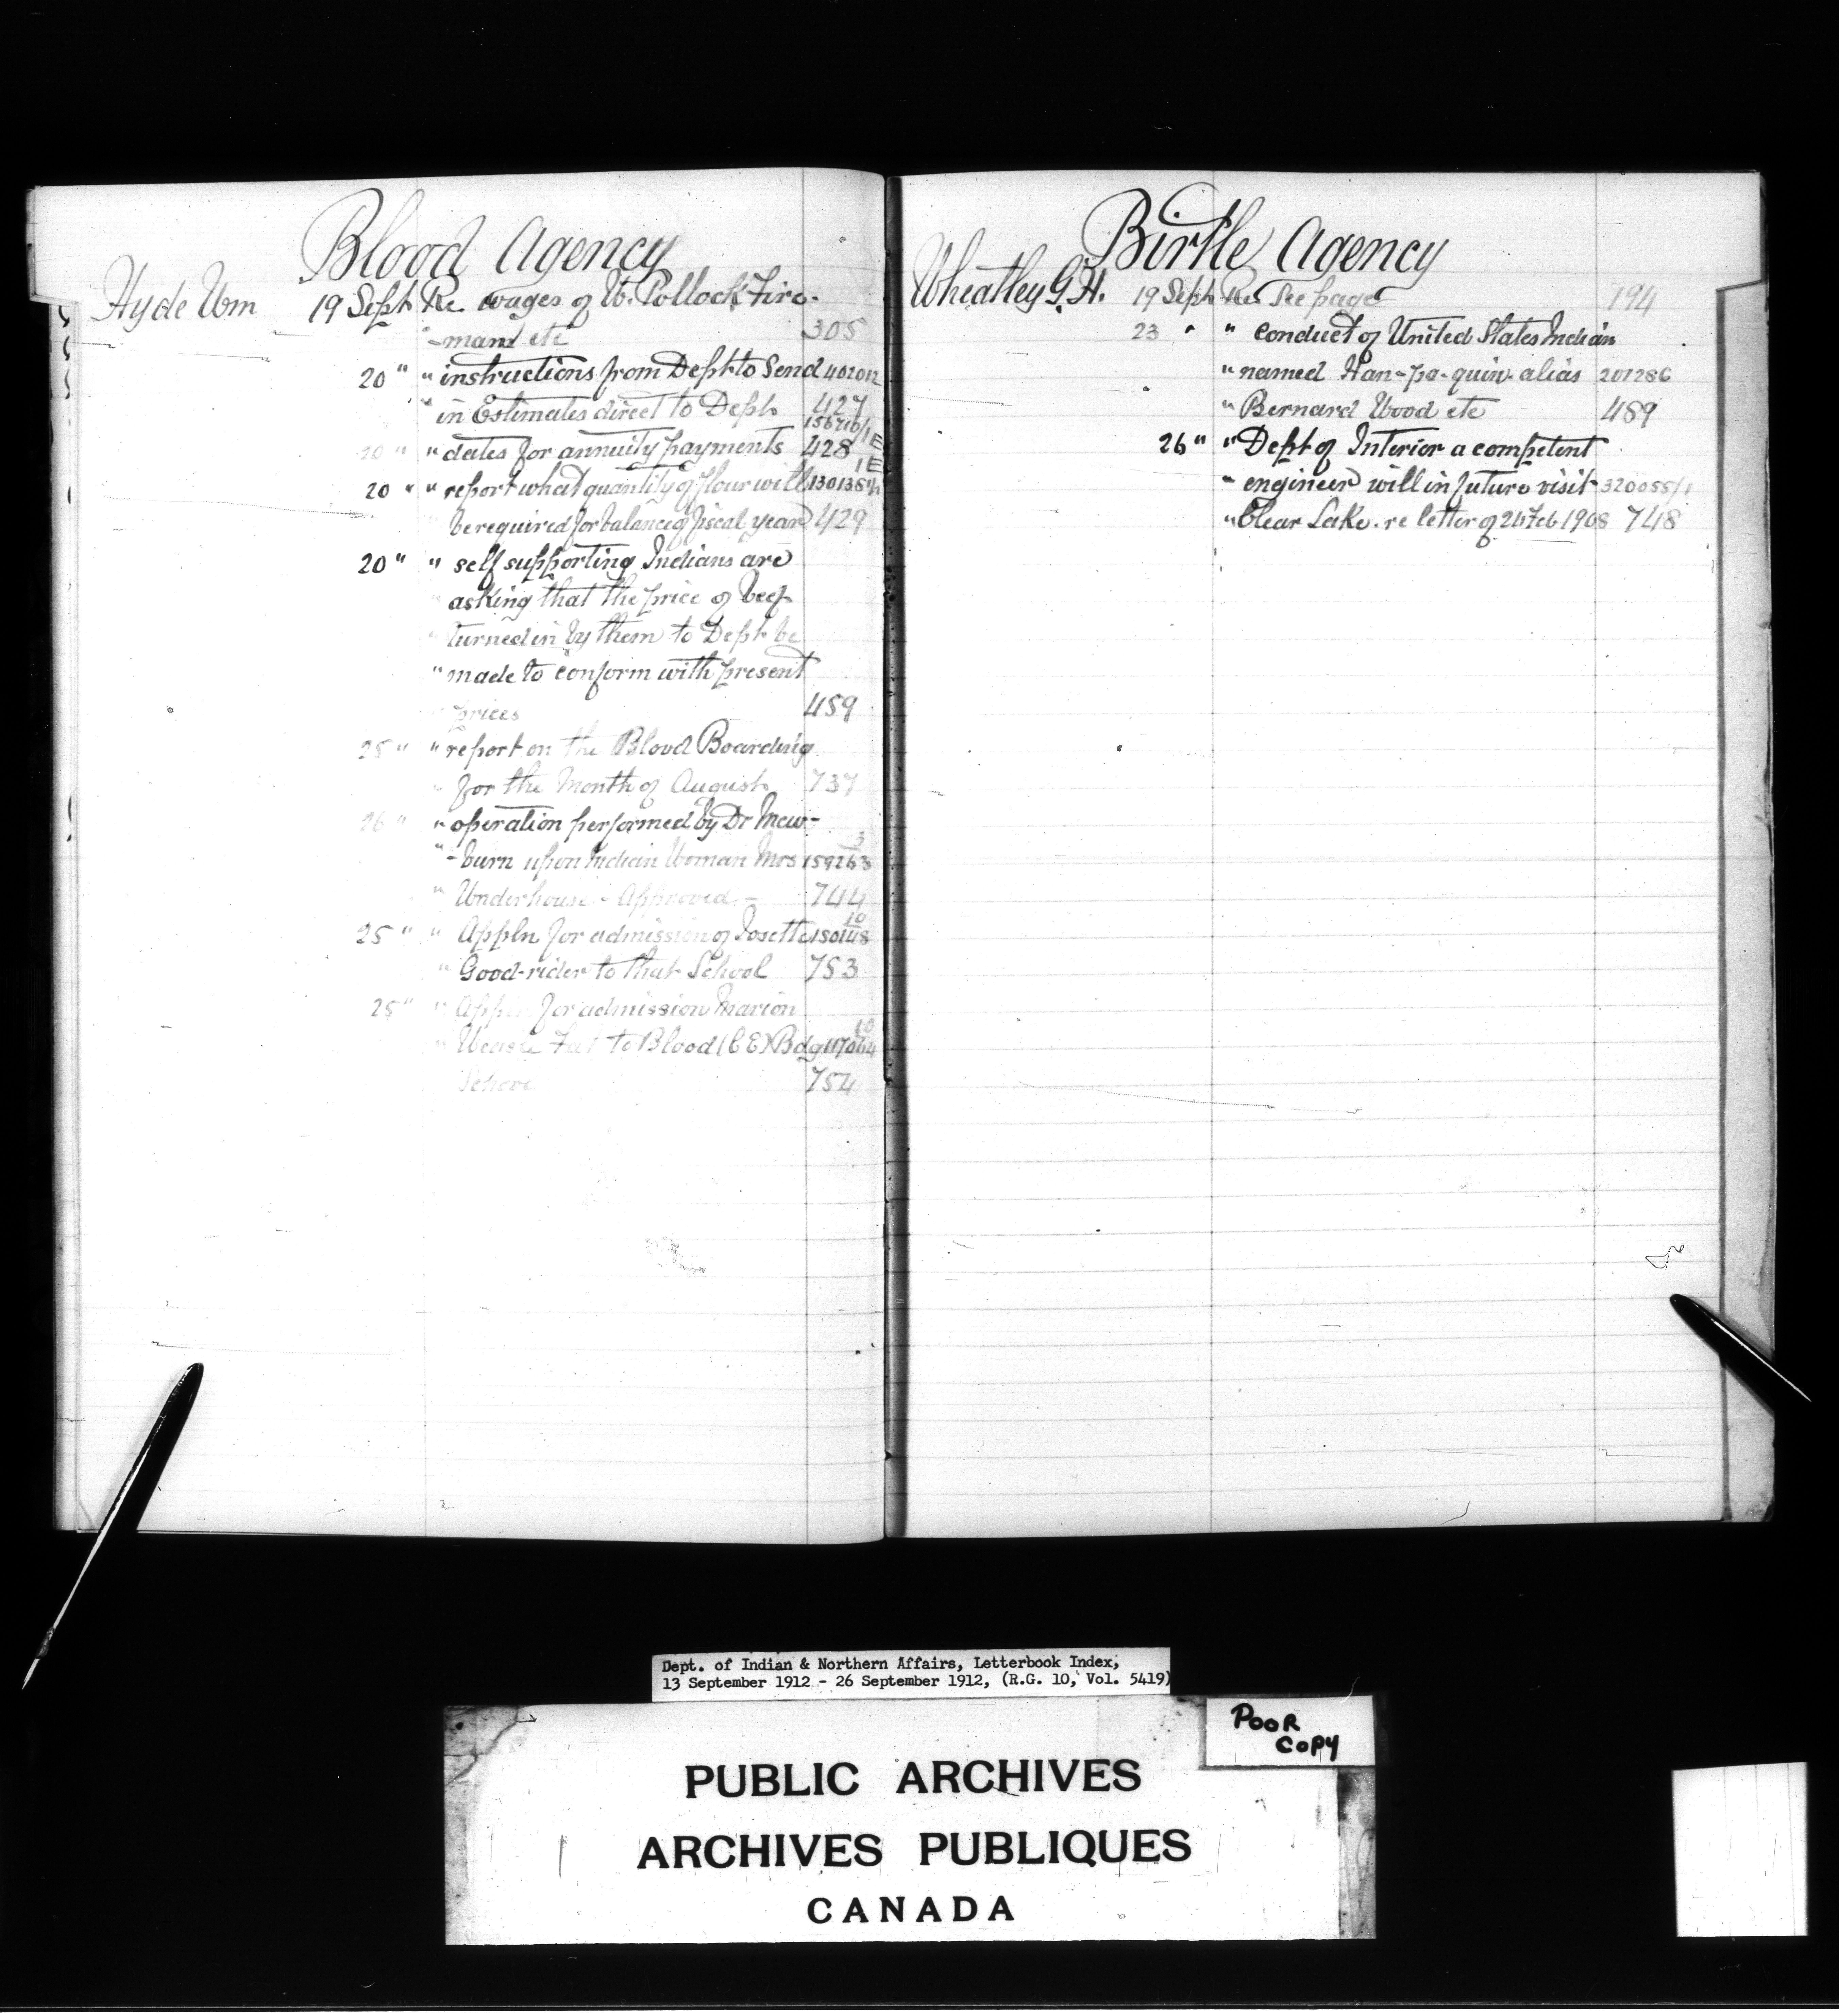 Blood Agency
Hyde Wm 19 Sept Re wages of W. Pollock Fire-
" -man etc 305
20 " " instructions from Dept to Send 401012
" in Estimates direct to Dept 427
156710/1E
20 " " dates for annuity payments 428
1E
20 " " report what quantity of flour will 130138
" be required for balance of fiscal year 429
20 " " self supporting Indians are
" asking that the price of beef
" turned in by them to Dept be
" made to conform with present
" prices 459
25 " " report on the Blood Boarding
" for the Month of August 737
26 " " operation performed by Dr Mew-
3
" -burn upon Indian Woman Mrs 159263
" Underhouse - Approved - 744
10
25 " " Appln for admission of Josette 150148
" Good-rider to that School 753
25 " " Appln for admission Marion
10
" Fat to Blood (C E) Bdg 117064
School 754
Birtle Agency
Wheatley G.H. 19 Sept Re See page 194
23 " " conduct of United States Indian
" named Han-pa-quin alias 201286
" Bernard Wood etc 489
26 " " Dept of Interior a competent
" engineer will in future visit 320055/1
" Clear Lake. re letter of 24 Feb 1908 748
Dept. of Indian & Northern Affairs, Letterbook Index,
13 September 1912 - 26 September 1912, (R.G. 10, Vol. 5419)
POOR
COPY
PUBLIC ARCHIVES
ARCHIVES PUBLIQUES
CANADA